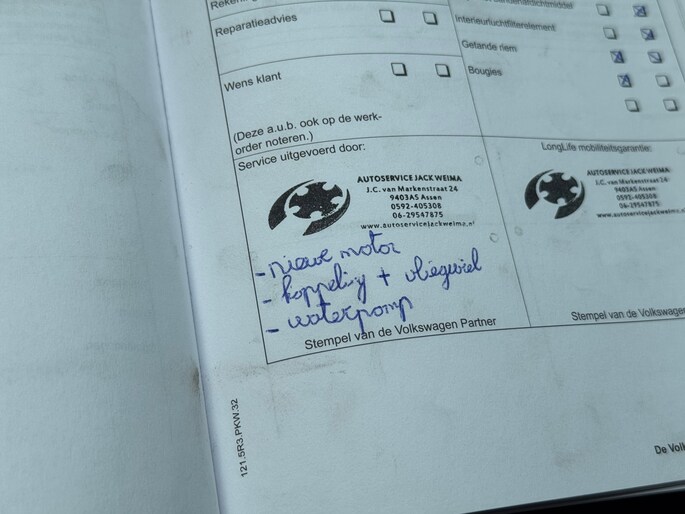 Reparatieadvies
Interieurluchtfilterelement
Getande riem
Bougies
Wens klant
(Deze a.u.b. ook op de werk-
order noteren.)
Service uitgevoerd door:
AUTOSERVICE JACK WEIMA
J.C. van Markenstraat 24
9403AS Assen
0592-405308
06-29547875
www.autoservicejackweima.nl
- nieuwe motor
- koppeling + vliegwiel
- waterpomp
Stempel van de Volkswagen Partner
LongLife mobiliteitsgarantie:
AUTOSERVICE JACK WEIMA
J.C. van Markenstraat 24
9403AS Assen
0592-405308
06-29547875
www.autoservicejackweima.nl
Stempel van de Volkswagen
121.5R3.PKW.32
De Volk